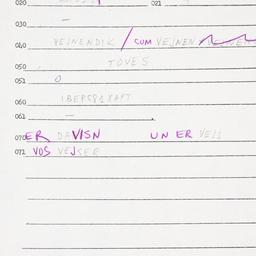 020 021
030 —
040 VEJNENDIK / CUM VEJNEN
050 TOVES
051 0
060
061 —
070 ER DAVISN UN ER VEJS
071 VOS VEJSER